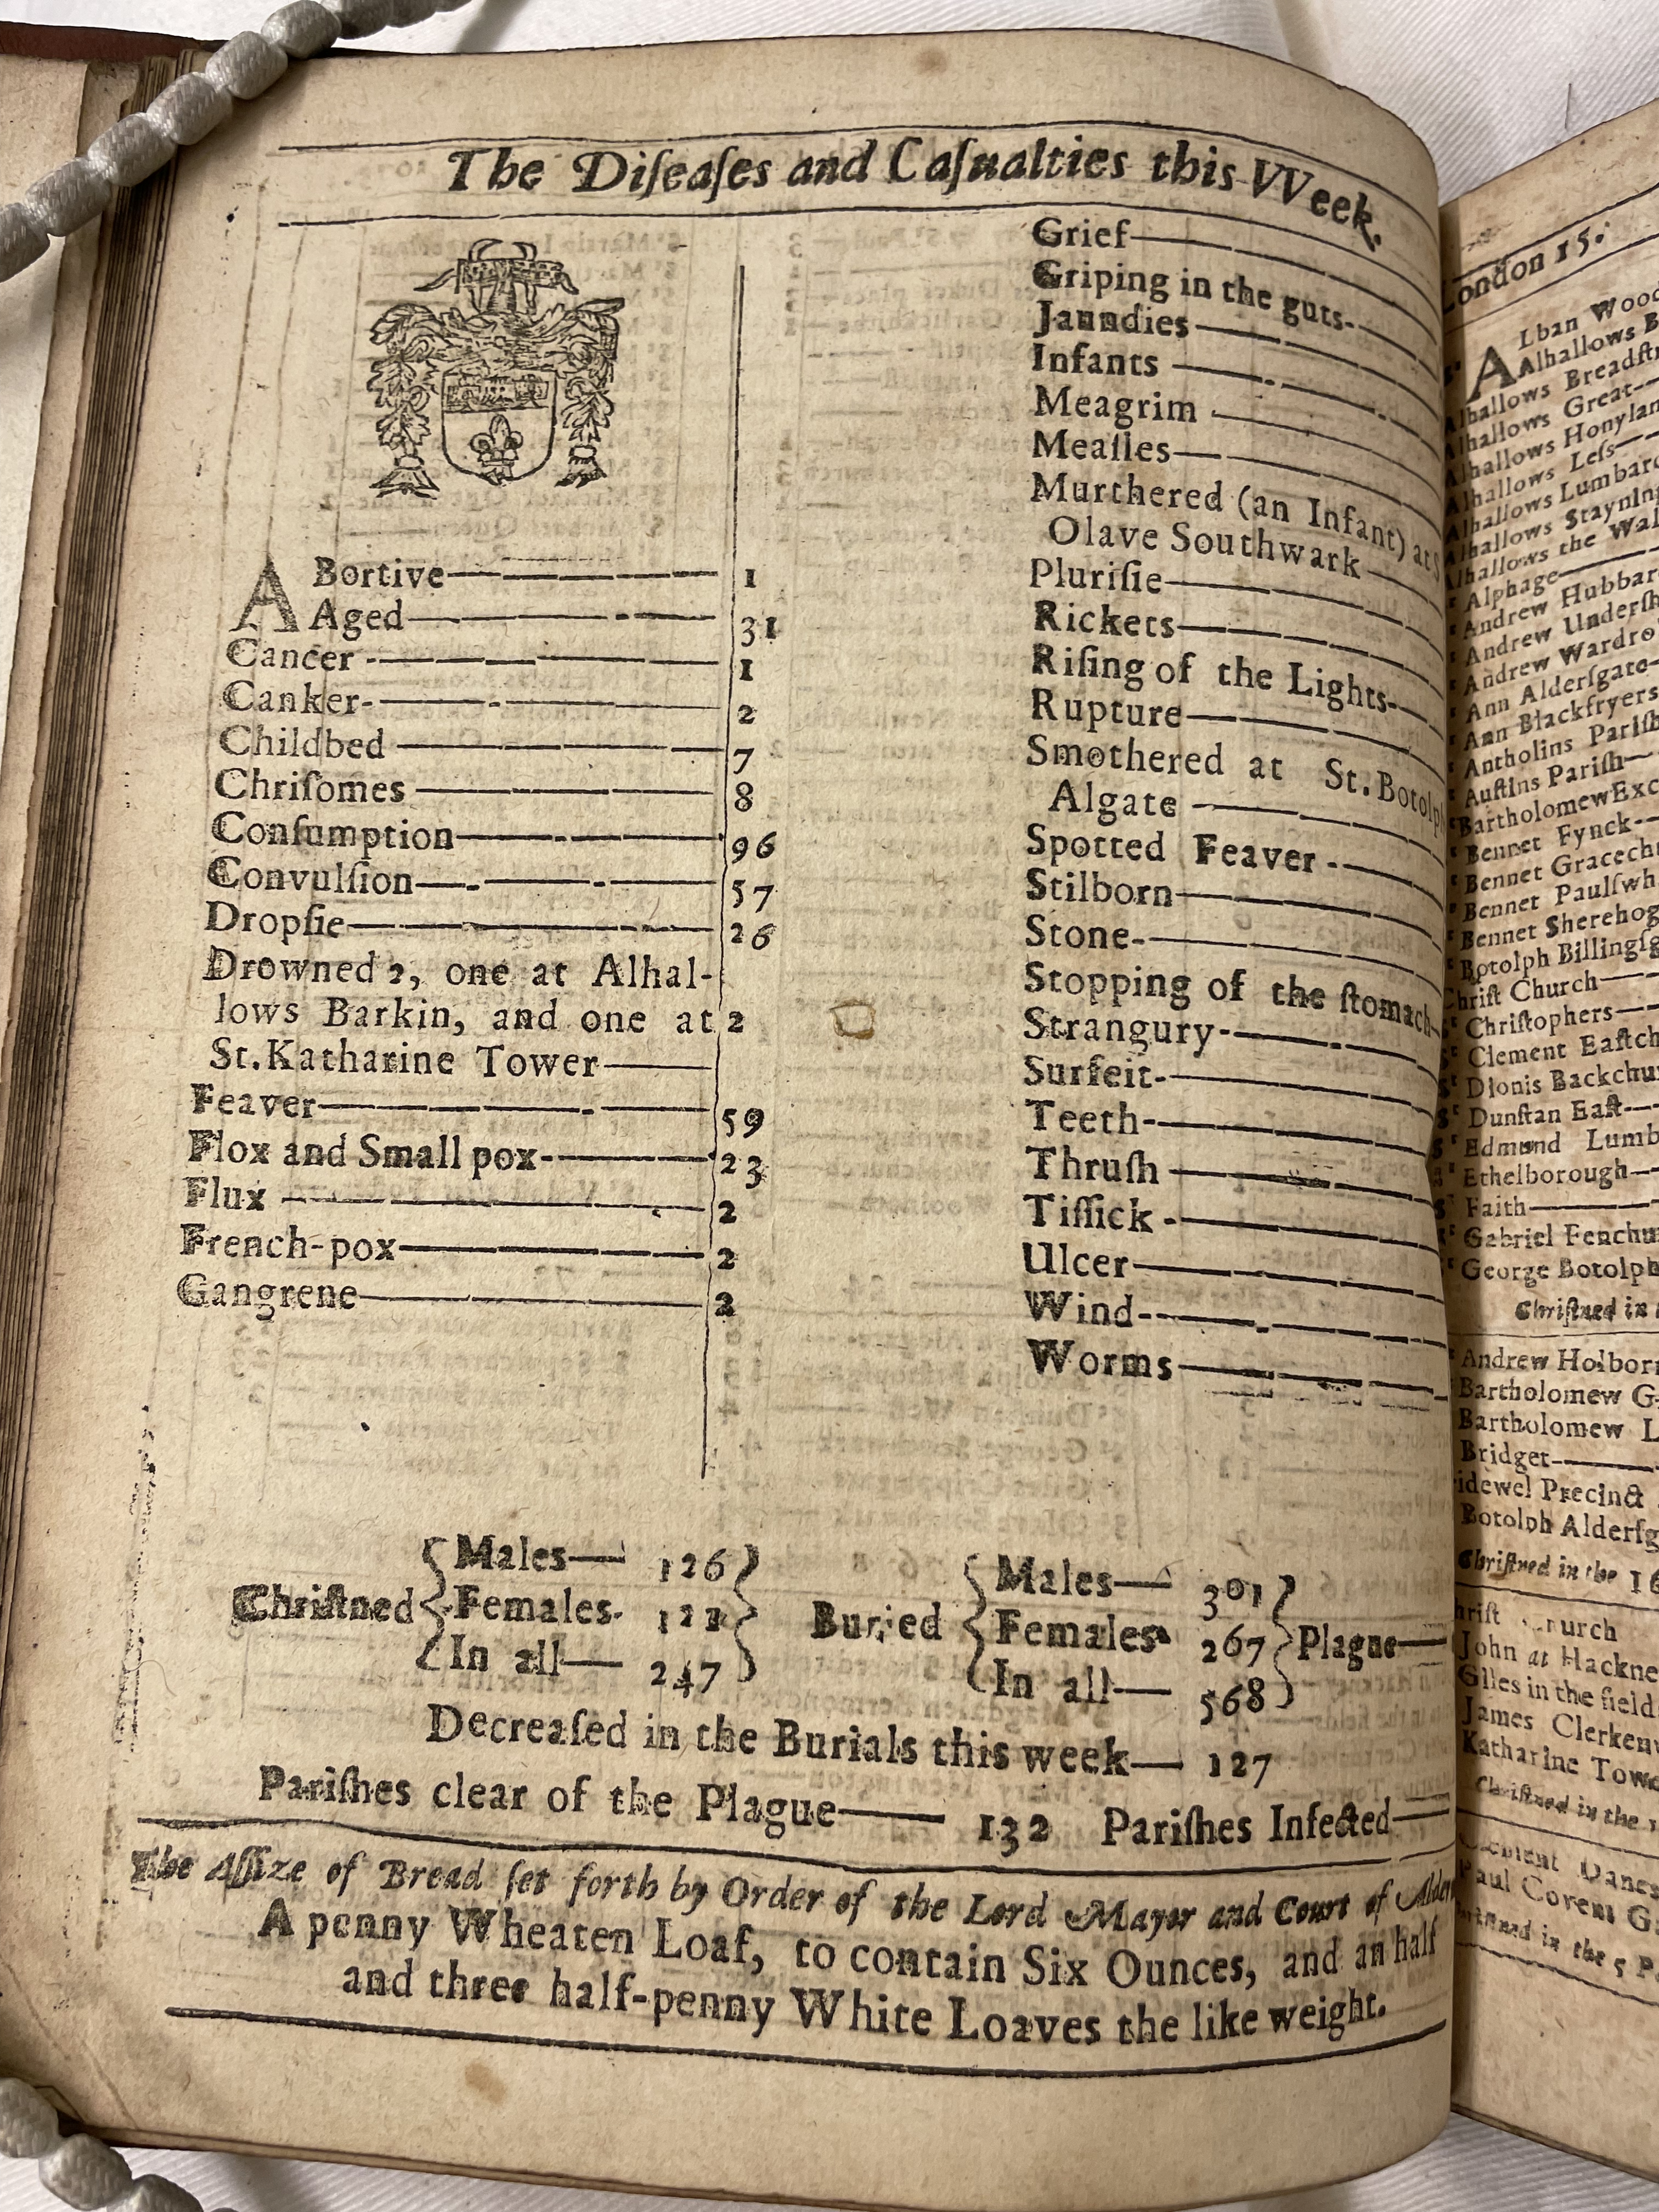 The Diſeaſes and Caſualties this VVeek.
ABortive 1
Aged 31
Cancer 1
Canker 2
Childbed 7
Chriſomes 8
Conſumption 96
Convulſion 57
Dropſie 26
Drowned 2, one at Alhal-
lows Barkin, and one at 2
St. Katharine Tower
Feaver 59
Flox and Small pox 23
Flux 2
French-pox 2
Gangrene 2
Grief
Griping in the guts
Jaundies
Infants
Meagrim
Meaſles
Murthered (an Infant) at S
Olave Southwark
Pluriſie
Rickets
Riſing of the Lights
Rupture
Smothered at St. Botolp
Algate
Spotted Feaver
Stilborn
Stone
Stopping of the ſtomach
Strangury
Surfeit
Teeth
Thruſh
Tiſſick
Ulcer
Wind
Worms
Chriſtned
Males 126
Females
In all 247
Buried
Males 301
Females 267
In all 568
Plague
Decreaſed in the Burials this week— 127
Pariſhes clear of the Plague— 132 Pariſhes Infected—
The Aſſize of Bread ſet forth by Order of the Lord Mayor and Court of Alder
A penny Wheaten Loaf, to contain Six Ounces, and an half
and three half-penny White Loaves the like weight.
London 15.
ALban Wood
Alhallows B
Alhallows Breadſtr
Alhallows Great
Alhallows Honylan
Alhallows Leſs
Alhallows Lumbard
Alhallows Stayning
Alhallows the Wal
Alphage
Andrew Hubbar
Andrew Underſh
Andrew Wardro
Ann Alderſgate
Ann Blackfryers
Antholins Pariſh
Auſtins Pariſh
Bartholomew Exc
Bennet Fynck
Bennet Gracech
Bennet Paulſwh
Bennet Sherehog
Botolph Billingſg
Chriſt Church
Chriſtophers
Clement Eaſtch
Dionis Backchu
Dunſtan Eaſt
Edmund Lumb
Ethelborough
Faith
Gabriel Fenchu
George Botolph
Chriſtned in
Andrew Holborn
Bartholomew G
Bartholomew L
Bridget
idewel Precinct
Botolph Alderſg
Chriſtned in the 16
hriſt Church
John at Hackne
Giles in the field
James Clerken
Katharine Towe
Chriſtned in the
Clement Danes
Paul Covent G
in the 5 P